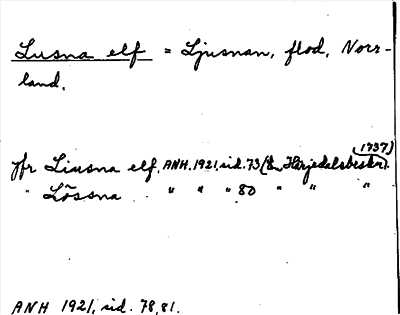 Lusna elf = Ljusnan, flod, Norr-
land.
1737)
jfr Liusna elf, ANH. 1921, sid. 73 (En Härjedalsbeskr.
" Lõssna " " " 80 " " "
ANH 1921, sid. 78, 81.